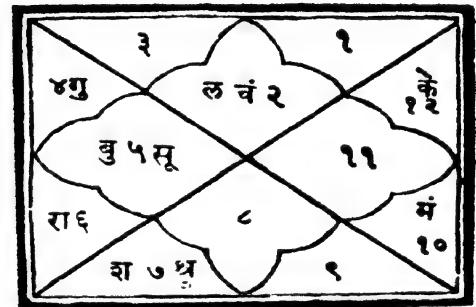 ३ १
४गु ल चं २ के
१२
बु ५ सू ११
रा ६ ८ मं
१०
श ७ शु ९